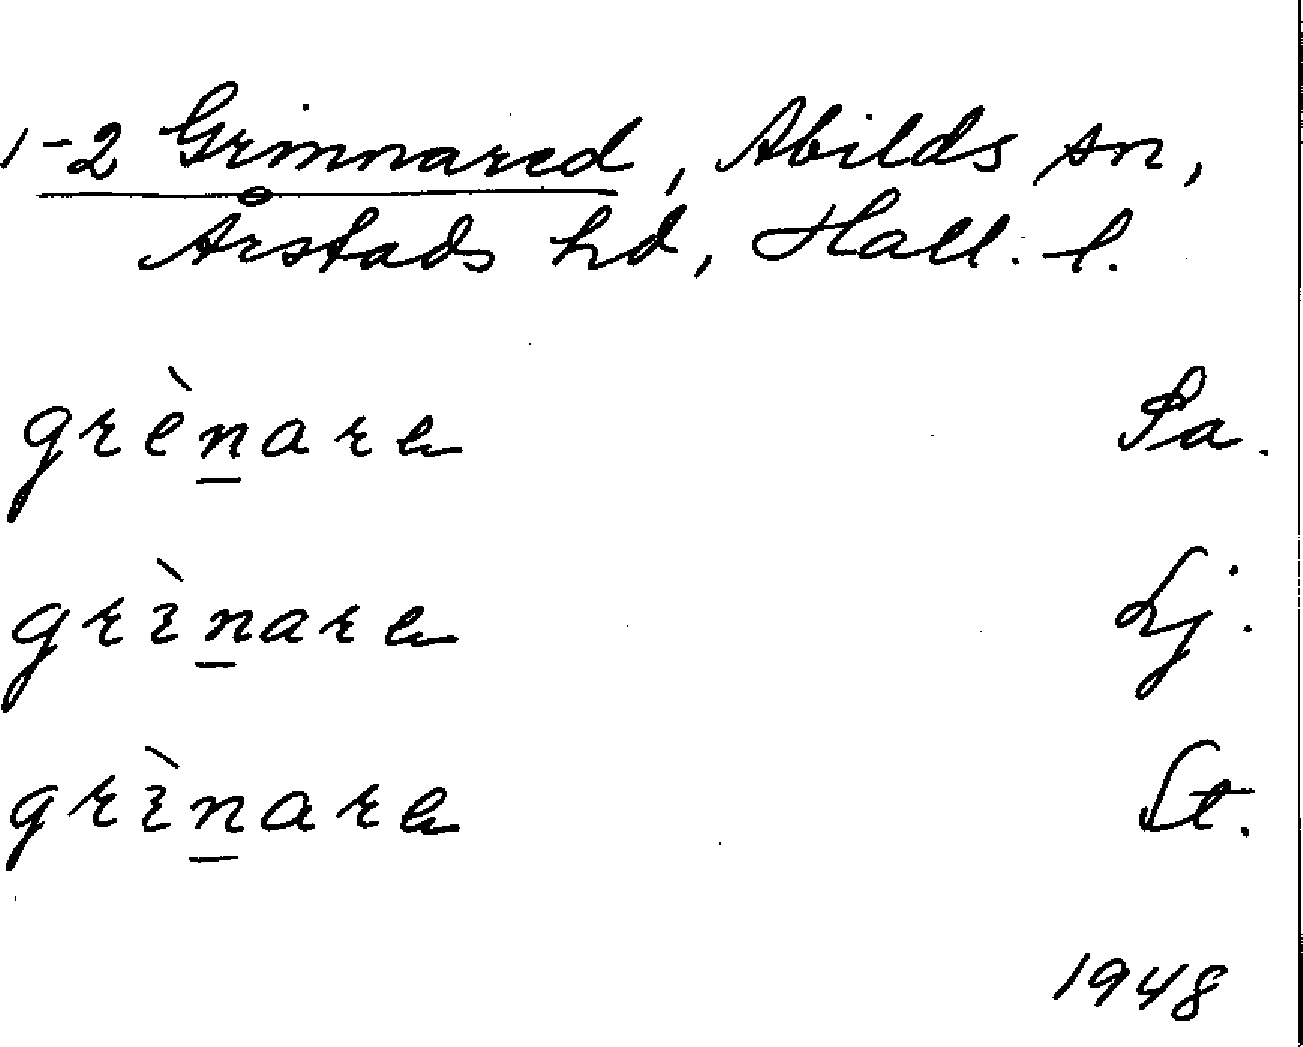 1-2 Grimnared, Abilds sn,
Årstads hd, Hall. l.
grènare Pa.
grìnare Lj.
grìnare St.
1948